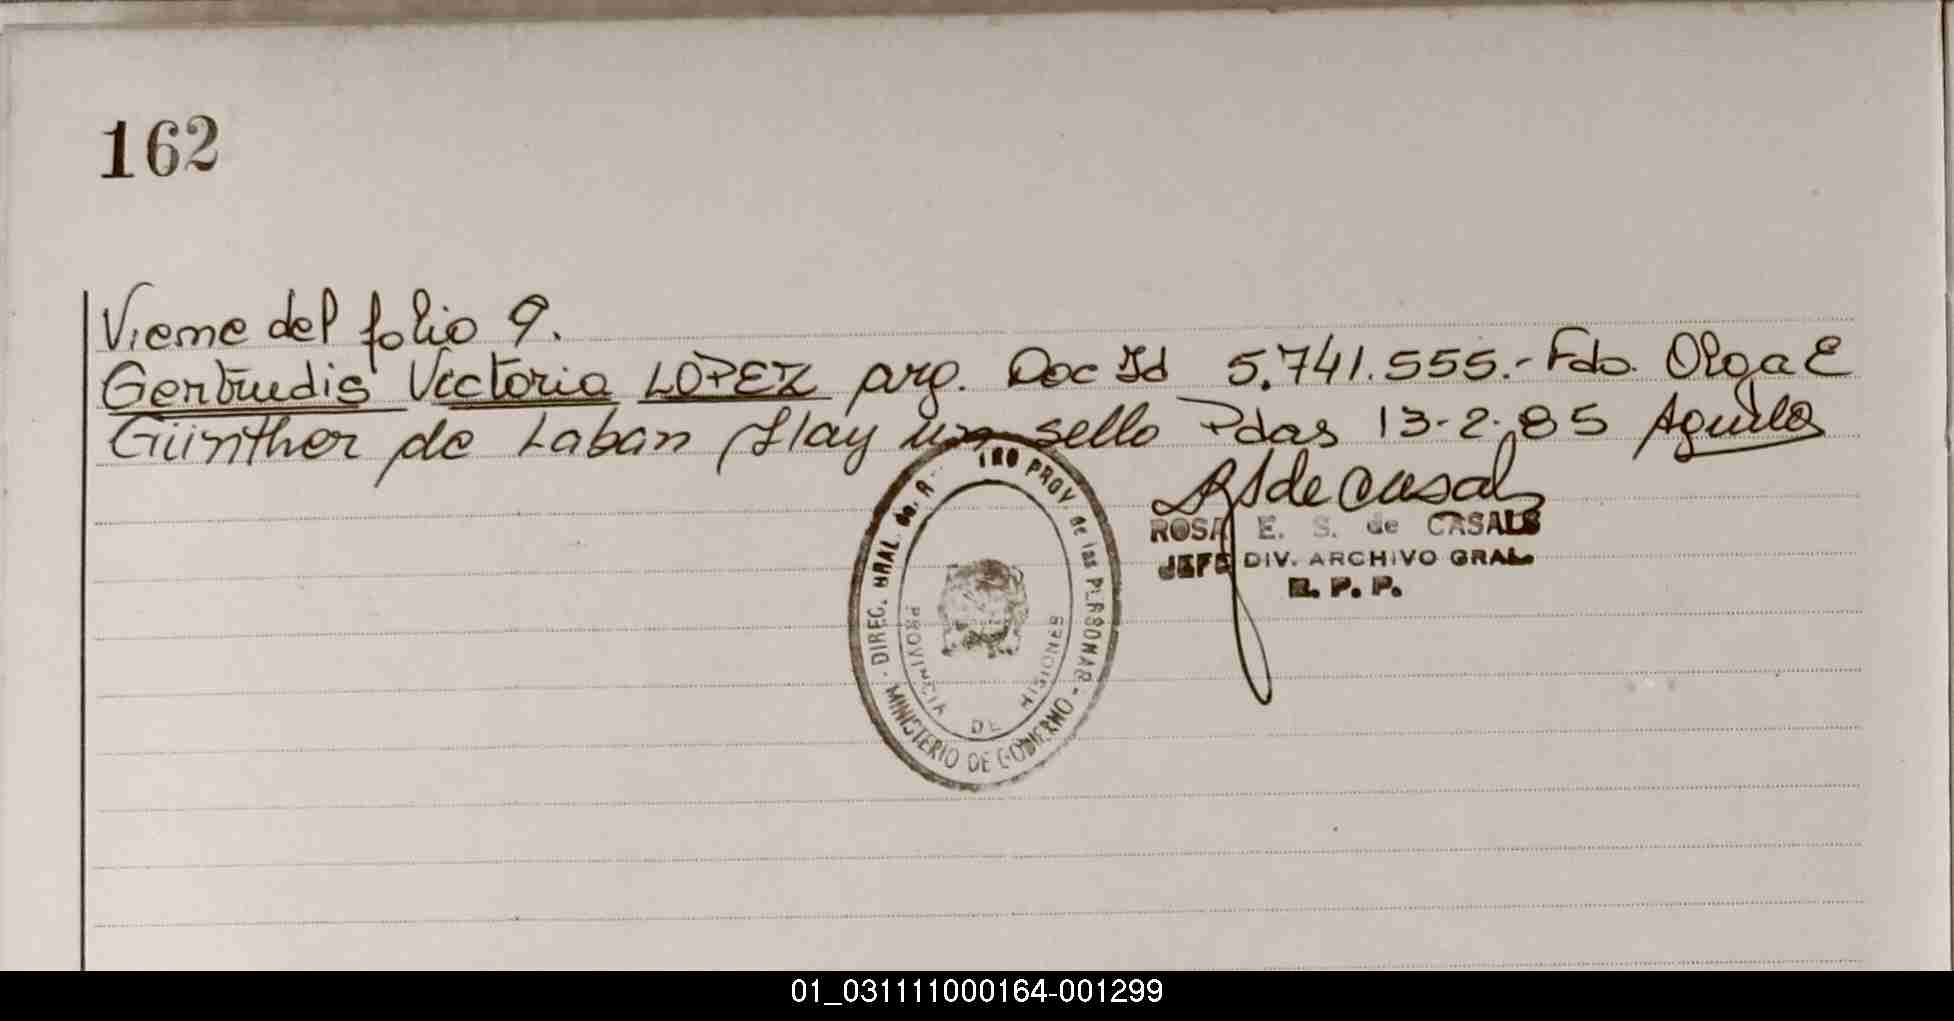 162
Viene del folio 9.
Gertrudis Victoria LOPEZ arg. Doc Id 5.741.555.- Fdo. Olga E
Günther de Laban Hay un sello Pdas 13-2-85 Aguila
RS de Casals
ROSA E. S. de CASALS
JEFE DIV. ARCHIVO GRAL.
R. P. P.
DIREC. GRAL. de. R PROV. de las PERSONAS
MINISTERIO DE GOBIERNO
PROVINCIA DE MISIONES
01_031111000164-001299